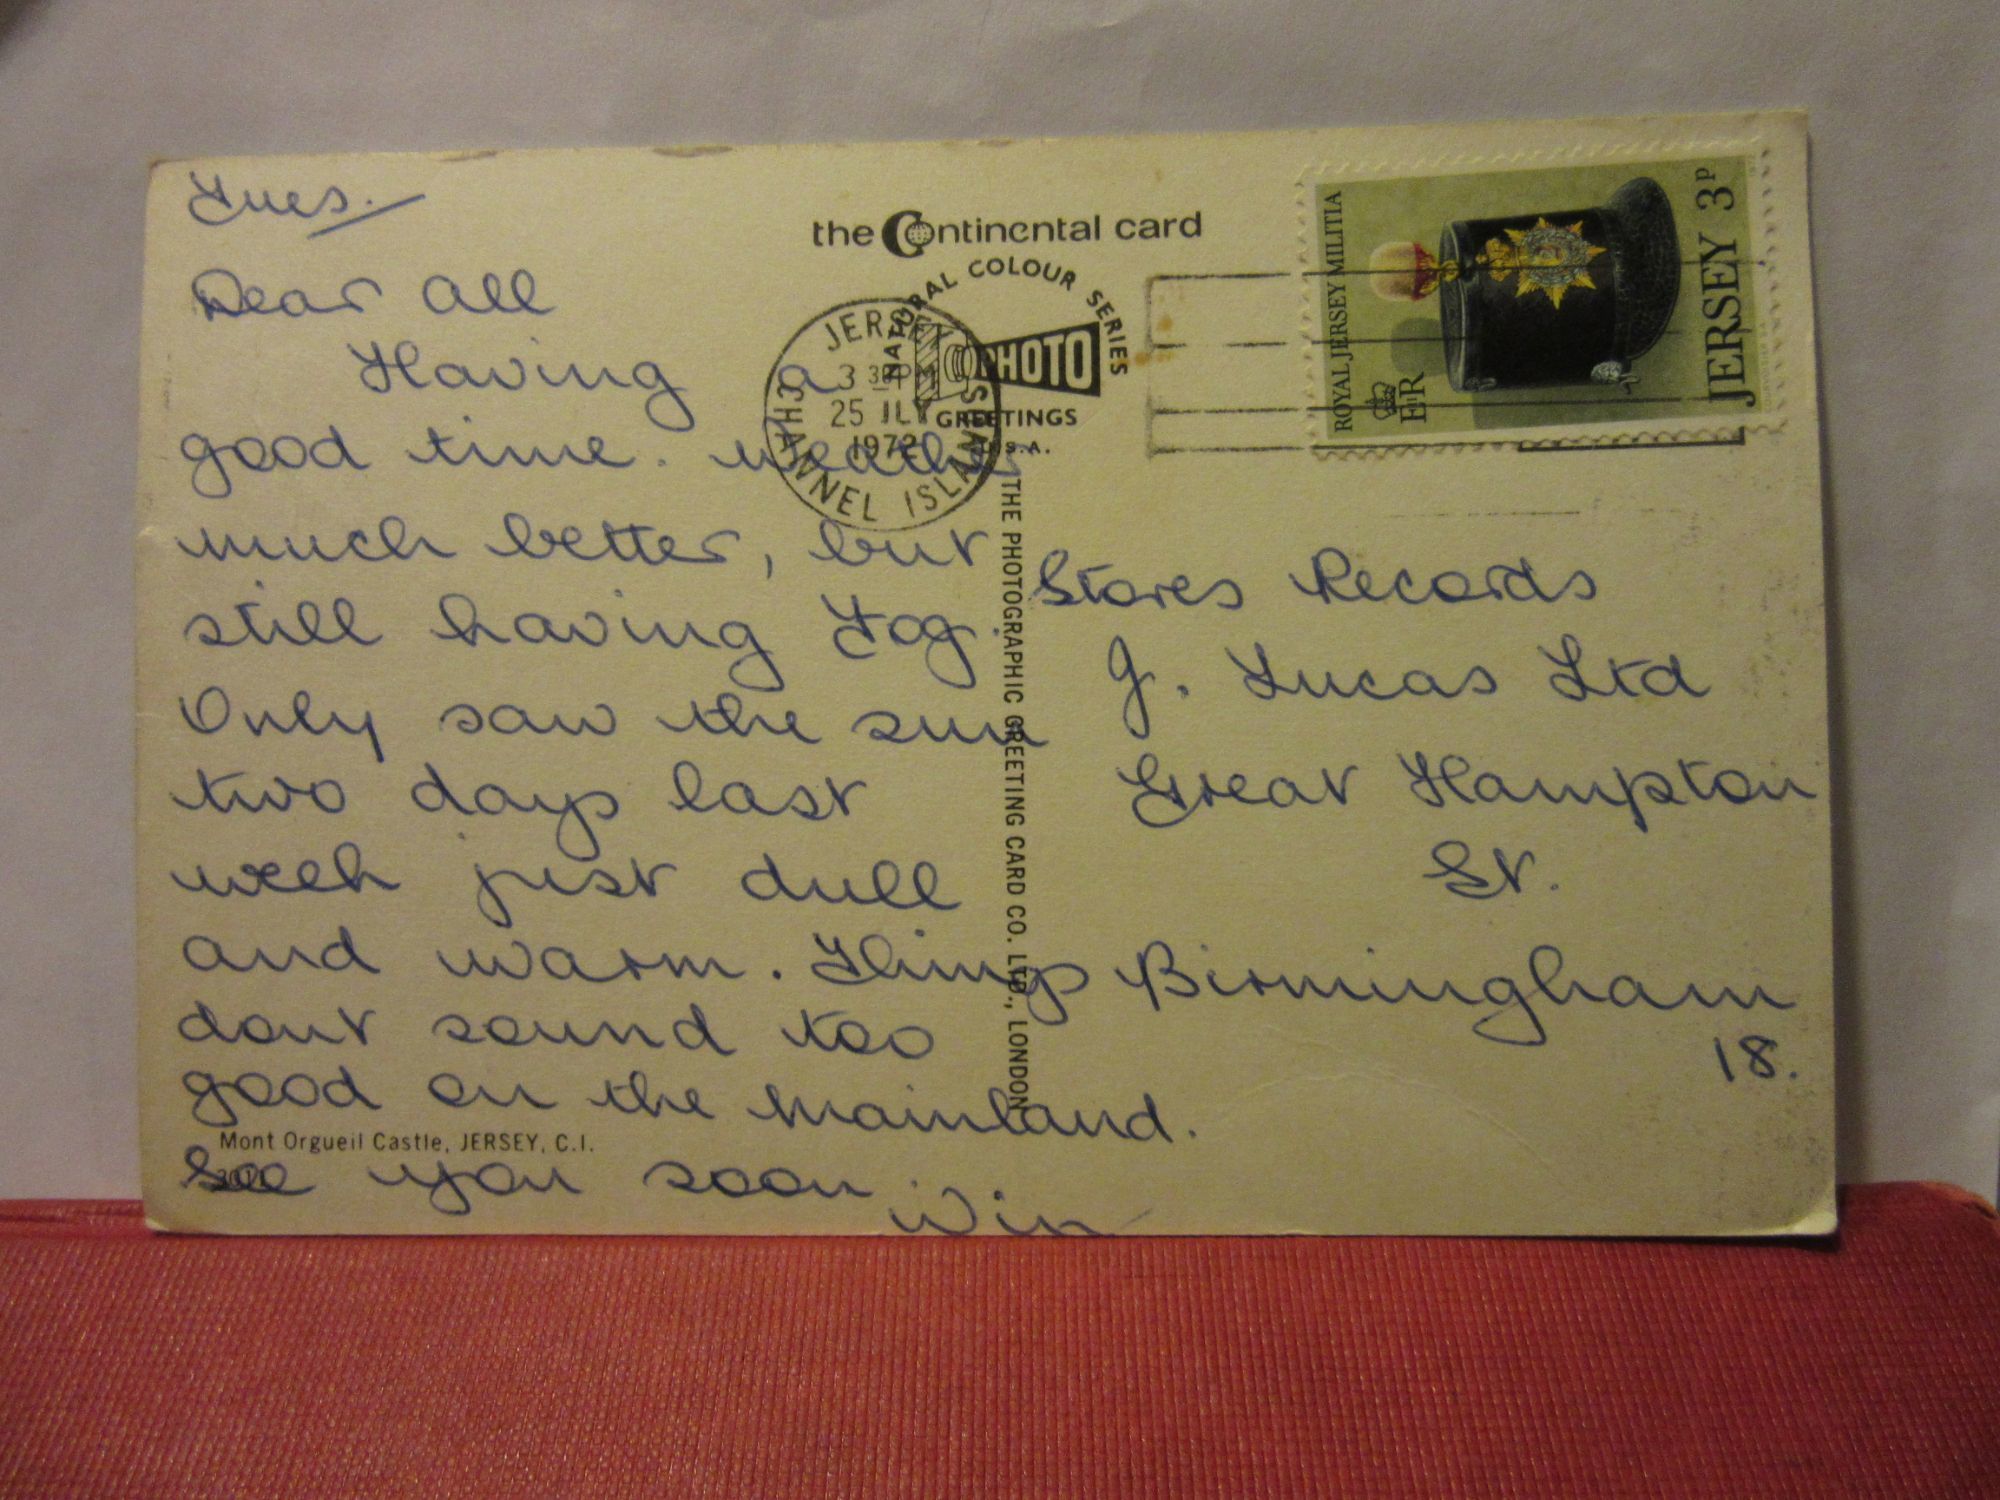 Tues.
Dear All
Having a
good time. weather
much better, but
still having Fog.
Only saw the sun
two days last
week just dull
and warm. Things
dont sound too
good on the mainland.
See you soon
Win
Mont Orgueil Castle, JERSEY, C.I.
the Continental card
NATURAL COLOUR SERIES
PHOTO
GREETINGS
JERSEY
3 30 PM
25 JLY
1972
CHANNEL ISLANDS
THE PHOTOGRAPHIC GREETING CARD CO. LTD., LONDON
ROYAL JERSEY MILITIA
EIIR
JERSEY 3P
Stores Records
J. Lucas Ltd
Great Hampton
St.
Birmingham
18.